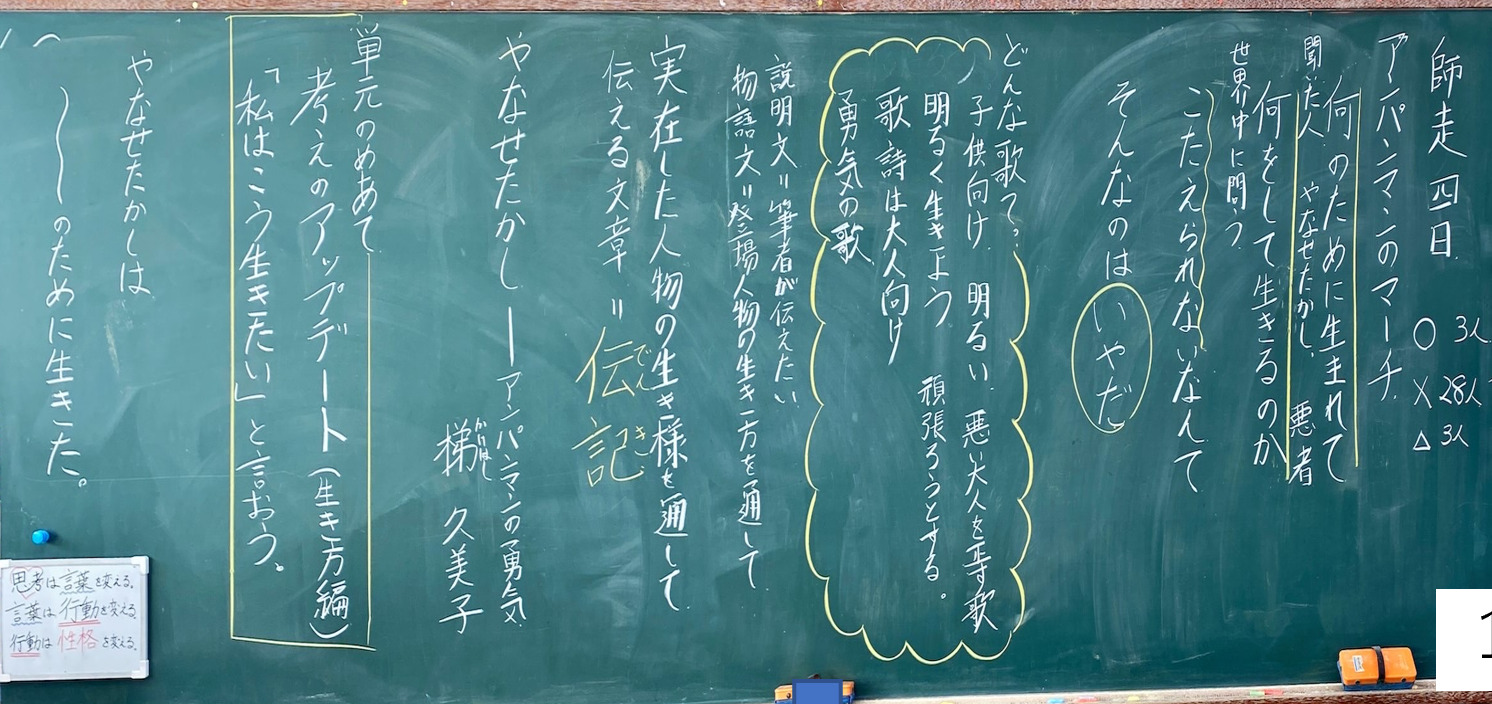 師走 四日
○ 3人
× 28人
△ 3人
アンパンマンのマーチ
何のために生まれて
聞いた人 やなせたかし、悪者
何をして生きるのか
世界中に問う
こたえられないなんて
そんなのはいやだ
どんな歌って。
子供向け 明るい 悪い大人を正す歌
明るく生きよう 頑張ろうとする。
歌詩は大人向け
勇気の歌
説明文=筆者が伝えたい
物語文=登場人物の生き方を通して
実在した人物の生き様を通して
伝える文章=伝記
でんき
やなせたかし―アンパンマンの勇気
梯 久美子
かけはし
単元のめあて
考えのアップデート(生き方編)
「私はこう生きたい」と言おう。
やなせたかしは
〜のために生きた。
思考は言葉を変える。
言葉は行動を変える。
行動は性格を変える。
1